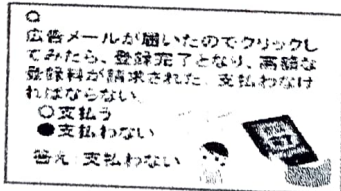 Q
広告メールが届いたのでクリックし
てみたら、登録完了となり、高額な
登録料が請求された。支払わなけ
ればならない。
○支払う
●支払わない
答え:支払わない